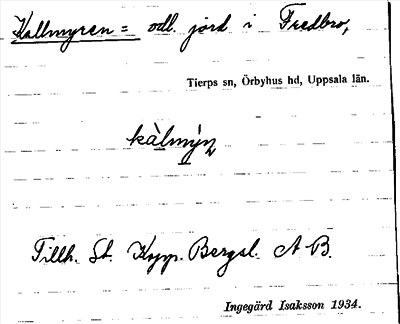 Kallmyren = odl. jord i Fredbro,
Tierps sn, Örbyhus hd, Uppsala län.
kàlmỳn
Tillh. St. Kopp. Bergsl. A B.
Ingegärd Isaksson 1934.